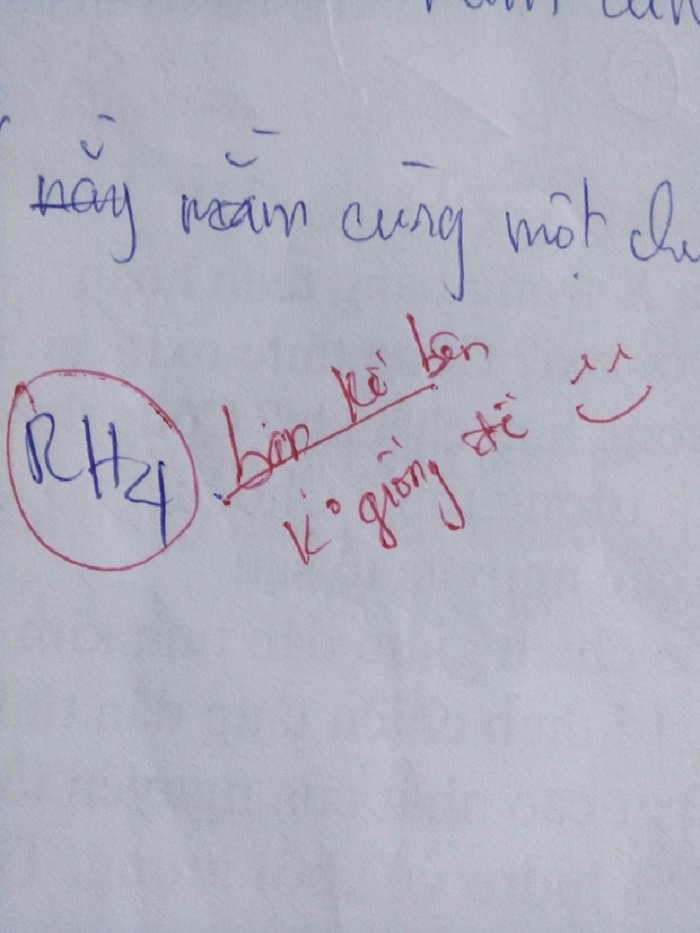 nẵy nẵm cũng một
RH4
bạn kế bên
k° giống đề ^^